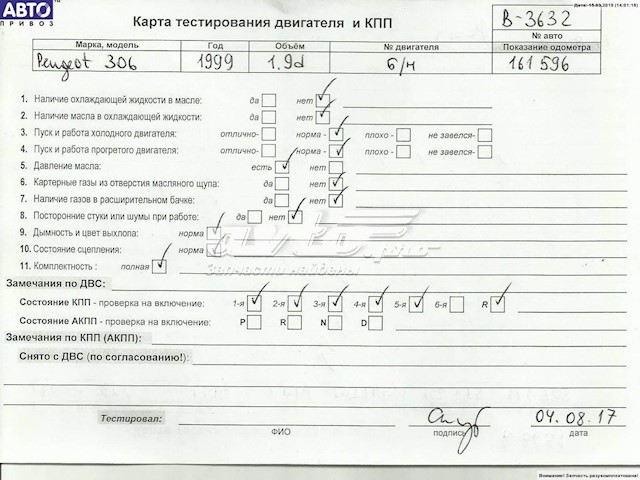 Дата: 15.03.2019 (14:01:18)
АВТО
ПРИВОЗ
Карта тестирования двигателя и КПП
B-3632
№ авто
Марка, модель Год Объём № двигателя Показание одометра
Peugeot 306 1999 1.9d б/н 161 596
1. Наличие охлаждающей жидкости в масле: да нет
2. Наличие масла в охлаждающей жидкости: да нет
3. Пуск и работа холодного двигателя: отлично- норма - плохо - не завелся-
4. Пуск и работа прогретого двигателя: отлично- норма - плохо - не завелся-
5. Давление масла: есть нет
6. Картерные газы из отверстия масляного щупа: да нет
7. Наличие газов в расширительном бачке: да нет
8. Посторонние стуки или шумы при работе: да нет
9. Дымность и цвет выхлопа: норма
10. Состояние сцепления: норма
avto.pro
Запчасти найдены
11. Комплектность : полная
Замечания по ДВС:
Состояние КПП - проверка на включение: 1-я 2-я 3-я 4-я 5-я 6-я R
Состояние АКПП - проверка на включение: P R N D
Замечания по КПП (АКПП):
Снято с ДВС (по согласованию!):
Тестировал: 04.08.17
ФИО подпись дата
Внимание! Запчасть разукомплектована!